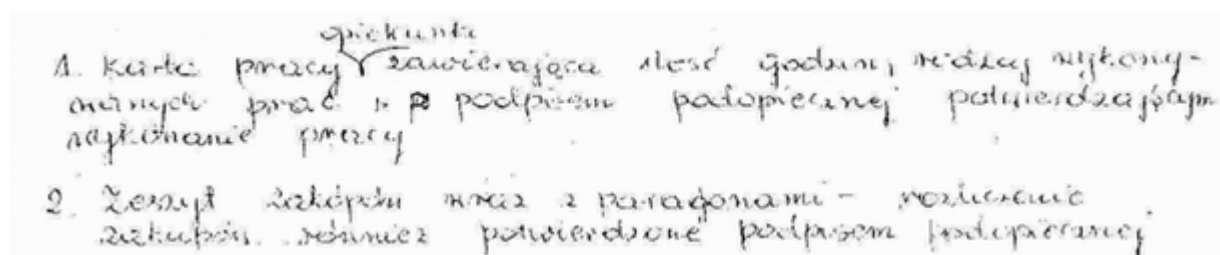 opiekunki
1. Karta pracy zawierająca ilość godzin, rodzaj wykony-
wanych prac z podpisem podopiecznej potwierdzającym
wykonanie pracy
2. Zeszyt zakupów wraz z paragonami - rozliczenie
zakupów również potwierdzone podpisem podopiecznej